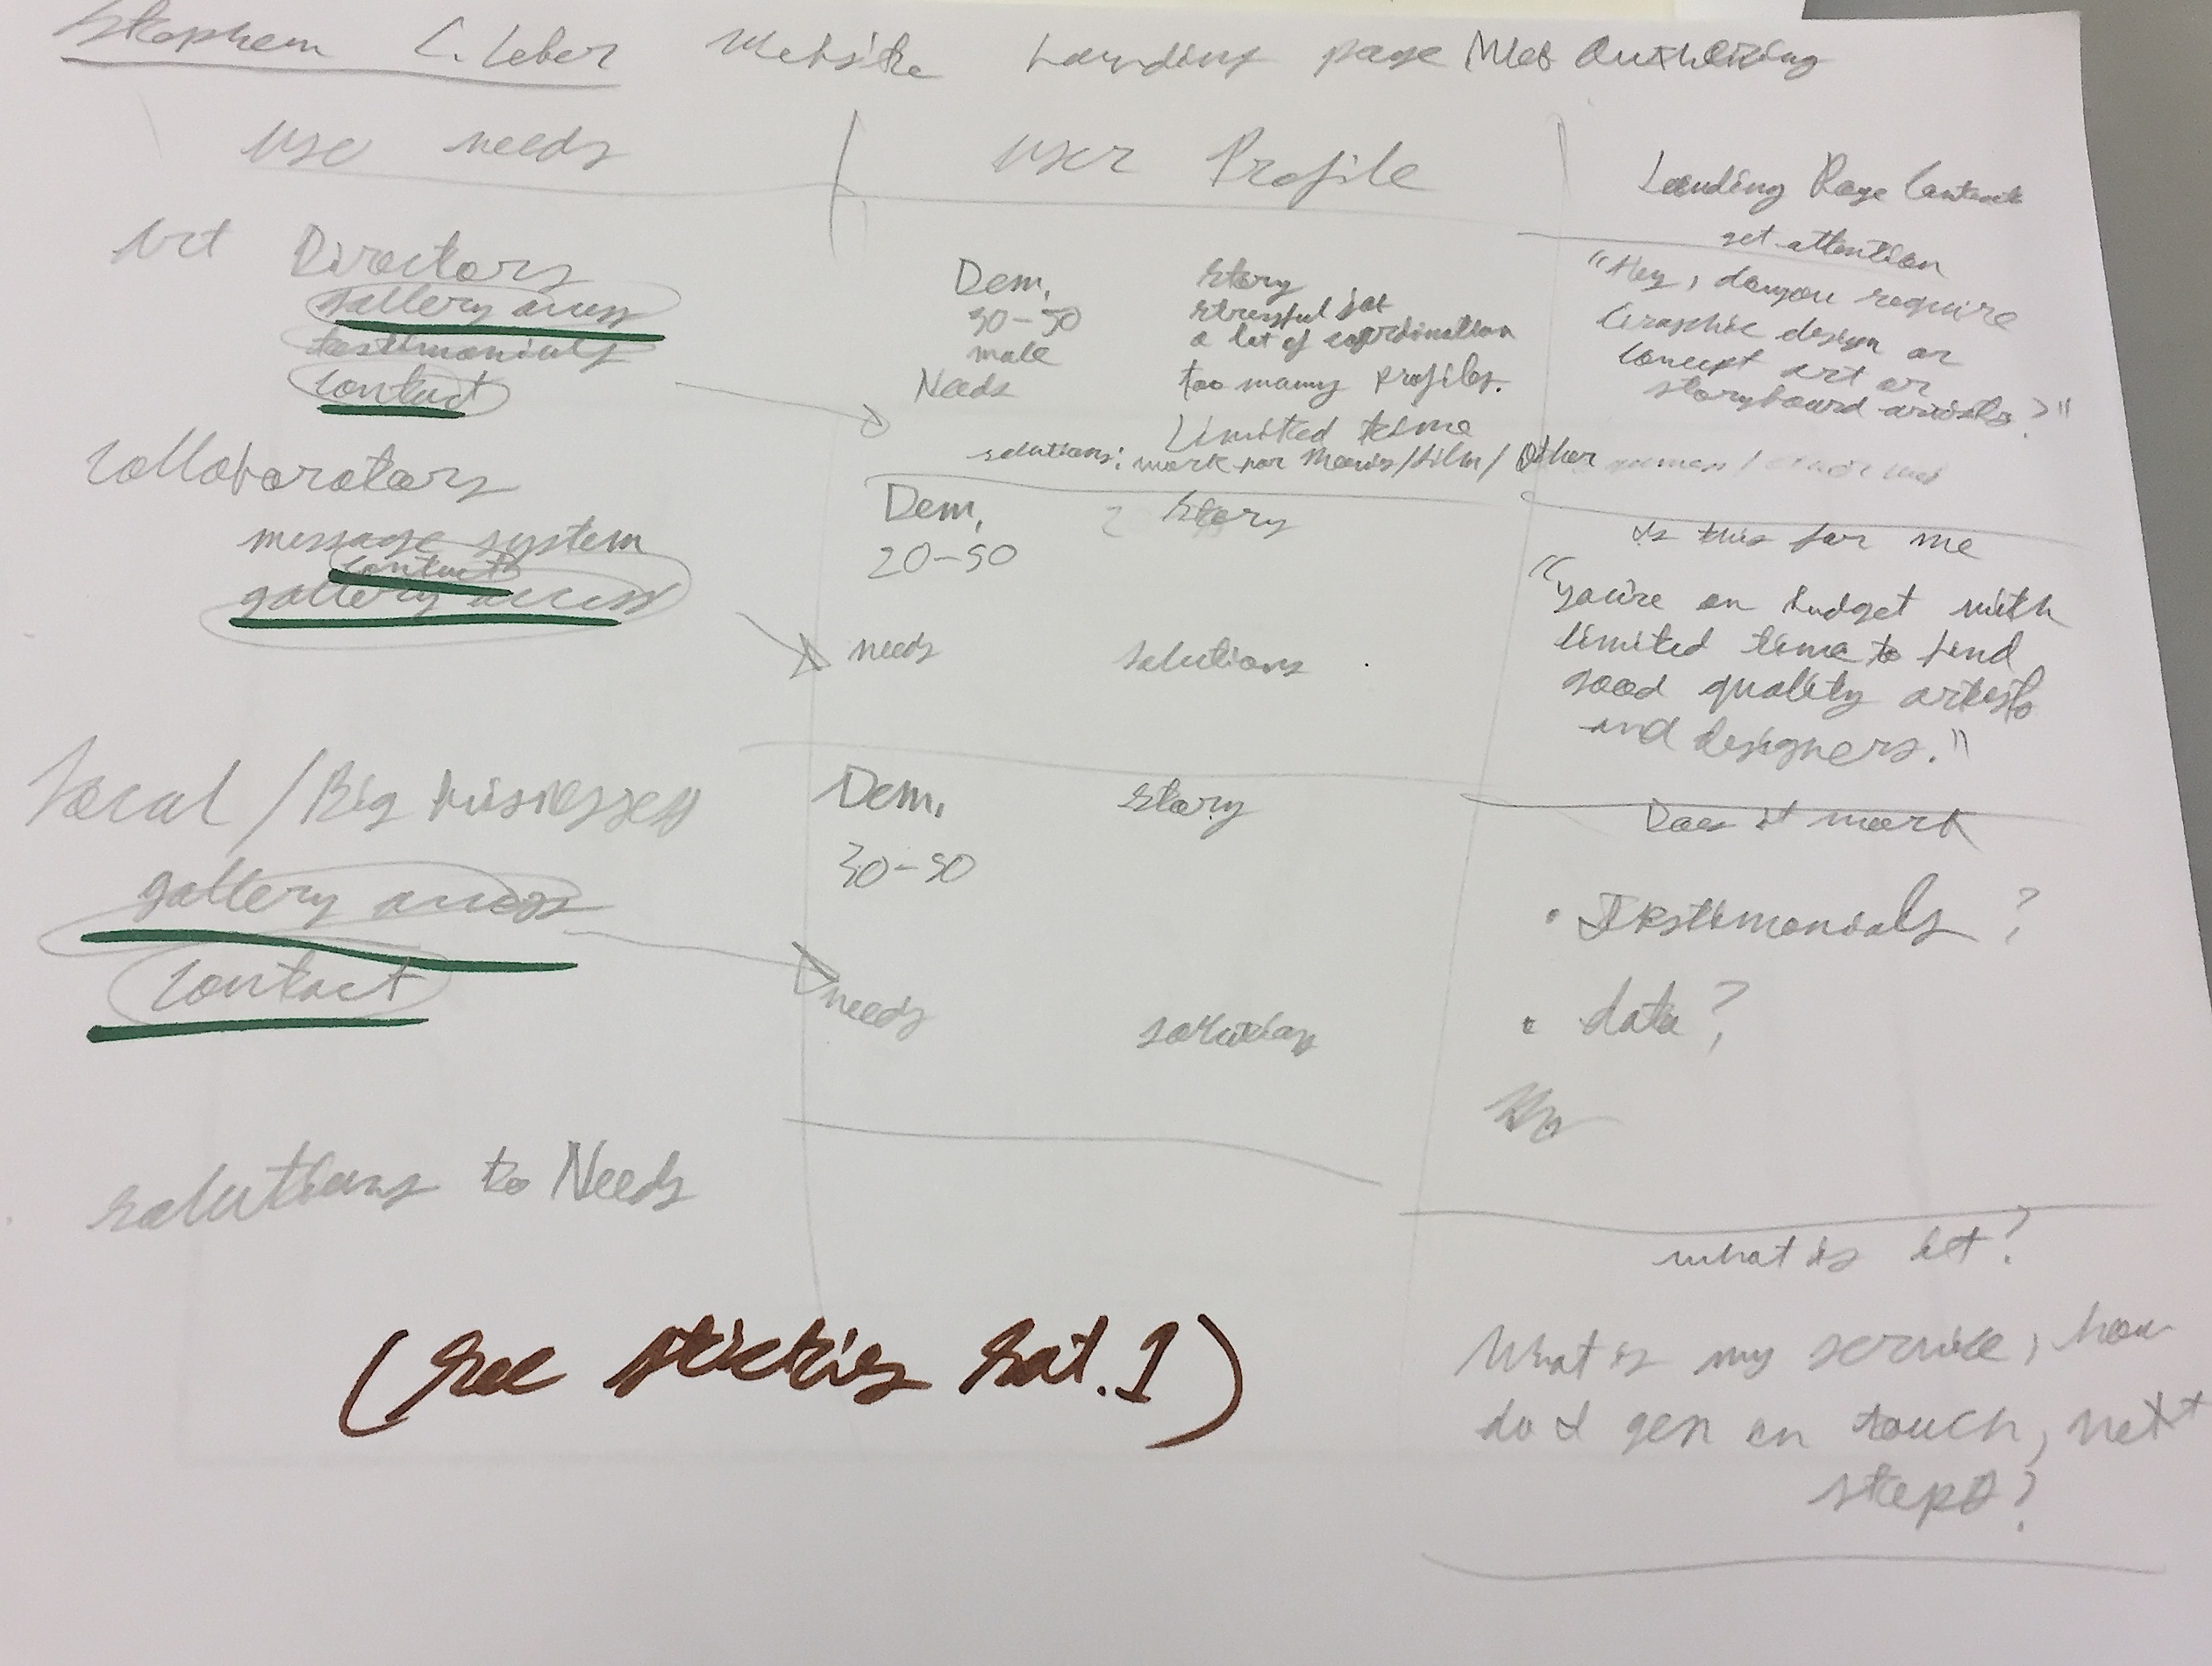 Stephen C. Leber Website Landing page Web Authoring
use needs
Art Directors
gallery access
testimonials
contact
Collaborators
message system
contact
gallery access
Local / Big businesses
gallery access
contact
solutions to Needs
(see stickies sat. 1)
user Profile
Dem. Story
30-50 stressful job
male a lot of coordination
Needs too many profiles.
Limited time
solutions: work for Movies/film/ Other
Dem. Story
20-50
needs solutions
Dem. Story
30-50
needs solution
Landing Page Content
get attention
"Hey, do you require
Graphic design or
concept art or
storyboard artists?"
Is this for me
"you're on budget with
limited time to find
good quality artists
and designers."
Does it work
• Testimonials ?
• data ?
what is it?
What is my service, how
do I get in touch, next
steps?